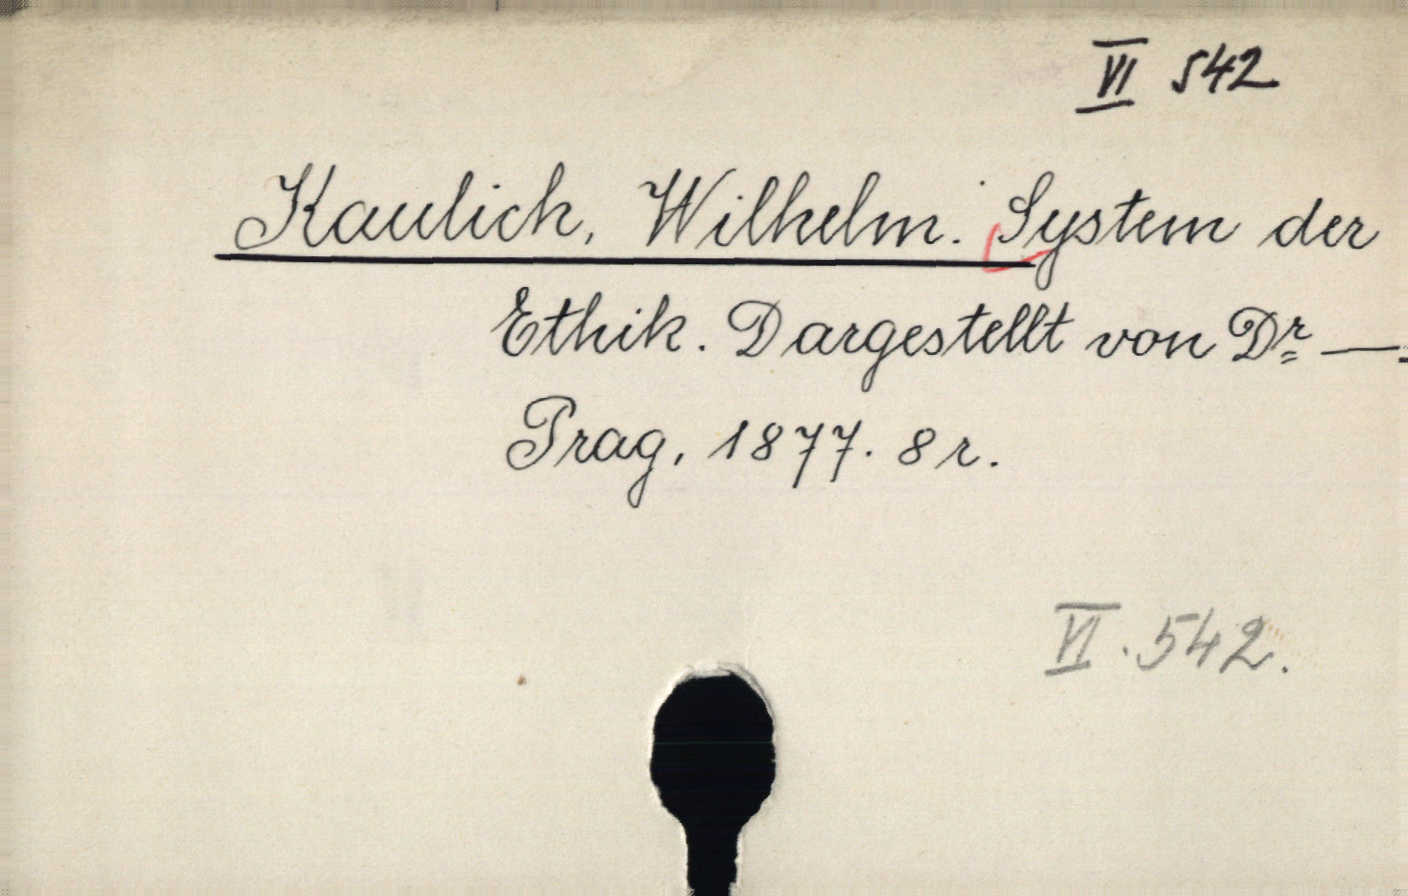 VI 542
Kaulich, Wilhelm. System der
Ethik. Dargestellt von Dr —.
Prag, 1877. 8 r.
VI. 542.